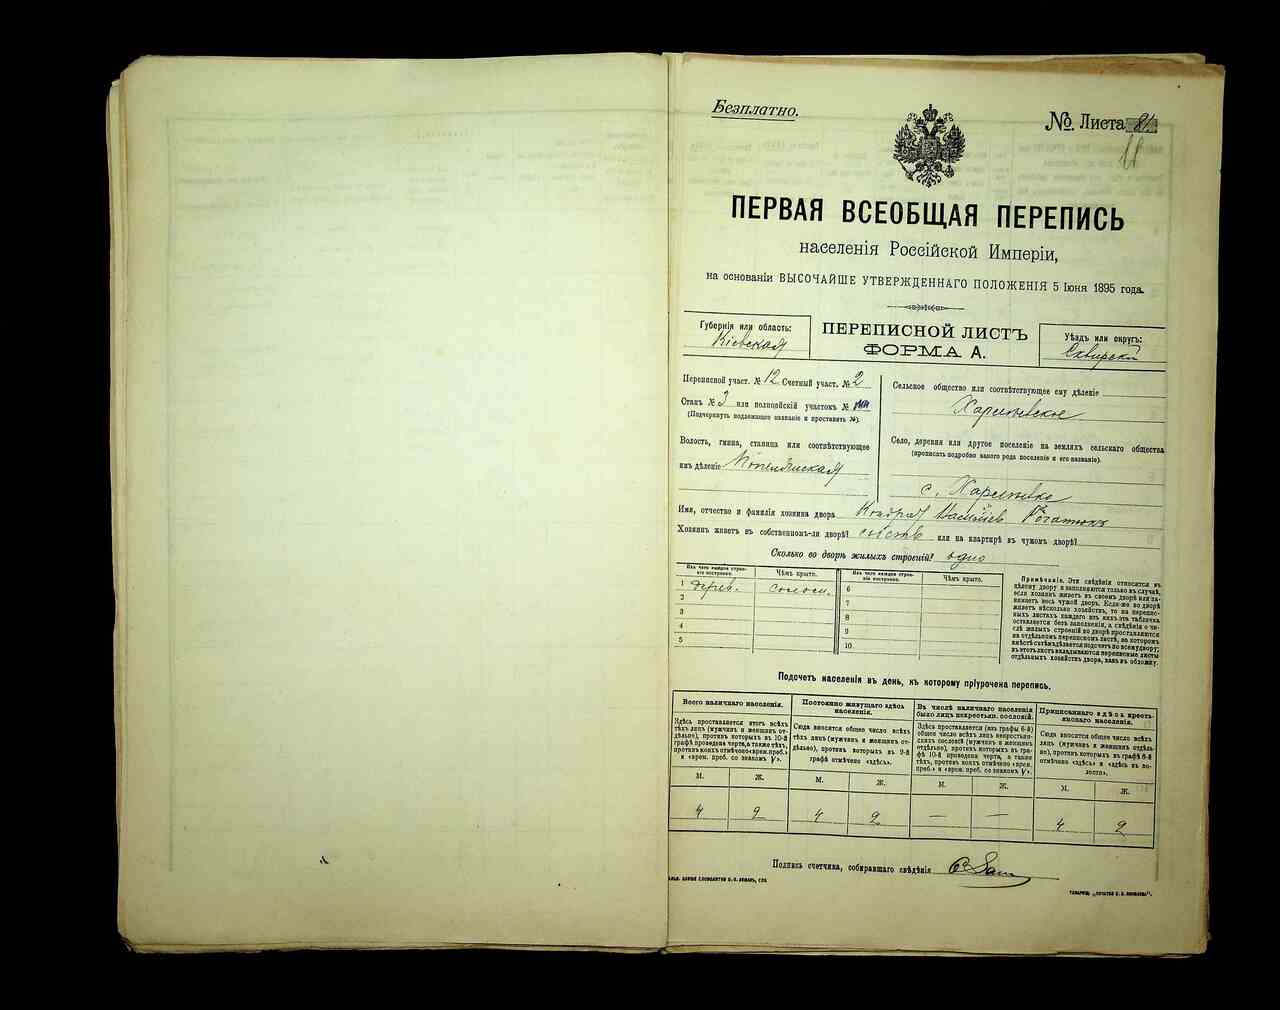 Безплатно.
№. Листа 81.
11
ПЕРВАЯ ВСЕОБЩАЯ ПЕРЕПИСЬ
населенія Россійской Имперіи,
на основаніи ВЫСОЧАЙШЕ УТВЕРЖДЕННАГО ПОЛОЖЕНІЯ 5 Іюня 1895 года.
Губернія или область:
Кіевская
ПЕРЕПИСНОЙ ЛИСТЪ
ФОРМА А.
Уѣздъ или округъ:
Сквирскій
Переписной участ. № 12 Счетный участ. № 2
Станъ № 3 или полицейскій участокъ №
(Подчеркнуть подлежащее названіе и проставить №).
Волость, гмина, станица или соотвѣтствующее
имъ дѣленіе
Сельское общество или соотвѣтствующее ему дѣленіе
Село, деревня или другое поселеніе на земляхъ сельскаго общества
(прописать подробно какого рода поселеніе и его названіе).
с.
Имя, отчество и фамилія хозяина двора Кондрат
Хозяинъ живетъ въ собственномъ-ли дворѣ? или на квартирѣ въ чужомъ дворѣ?
Сколько во дворѣ жилыхъ строеній? одно
Изъ чего каждое строеніе построено.
Чѣмъ крыто.
Изъ чего каждое строеніе построено.
Чѣмъ крыто.
1 дерев. солом. 6
2 7
3 8
4 9
5 10
Примѣчаніе. Эти свѣдѣнія относятся къ
цѣлому двору и заполняются только въ случаѣ,
если хозяинъ живетъ въ своемъ дворѣ или занимаетъ
весь чужой дворъ. Если-же во дворѣ
живетъ нѣсколько хозяйствъ, то на переписныхъ
листахъ каждаго изъ нихъ эта табличка
оставляется безъ заполненія, а свѣдѣнія о числѣ
жилыхъ строеній во дворѣ проставляются
на отдѣльномъ переписномъ листѣ, на которомъ
вмѣстѣ съ тѣмъ дѣлается подсчетъ по всему двору;
въ этотъ листъ вкладываются переписные листы
отдѣльныхъ хозяйствъ двора, какъ въ обложку.
Подсчетъ населенія въ день, къ которому пріурочена перепись.
Всего наличнаго населенія.
Здѣсь проставляется итогъ всѣхъ
тѣхъ лицъ (мужчинъ и женщинъ отдѣльно),
противъ которыхъ въ 10-й
графѣ проведена черта, а также тѣхъ,
противъ коихъ отмѣчено «врем. преб.»
и «врем. преб. со знакомъ V».
Постоянно живущаго здѣсь
населенія.
Сюда вносятъ общее число всѣхъ
тѣхъ лицъ (мужчинъ и женщинъ отдѣльно),
противъ которыхъ въ 9-й
графѣ отмѣчено «здѣсь».
Въ числѣ наличнаго населенія
было лицъ некрестьян. сословій.
Здѣсь проставляется (изъ графы 6-й)
общее число всѣхъ лицъ некрестьянскихъ
сословій (мужчинъ и женщинъ
отдѣльно), противъ которыхъ въ графѣ
10-й проведена черта, а также
тѣхъ, противъ коихъ отмѣчено «врем.
преб.» и «врем. преб. со знакомъ V».
Приписаннаго здѣсь крестьянскаго
населенія.
Сюда вносятъ общее число всѣхъ
лицъ (мужчинъ и женщинъ отдѣльно),
противъ которыхъ въ графѣ 8-й
отмѣчено «здѣсь» и «здѣсь въ волости».
М. Ж. М. Ж. М. Ж. М. Ж.
4 2 4 2 — — 4 2
Подпись счетчика, собиравшаго свѣдѣнія